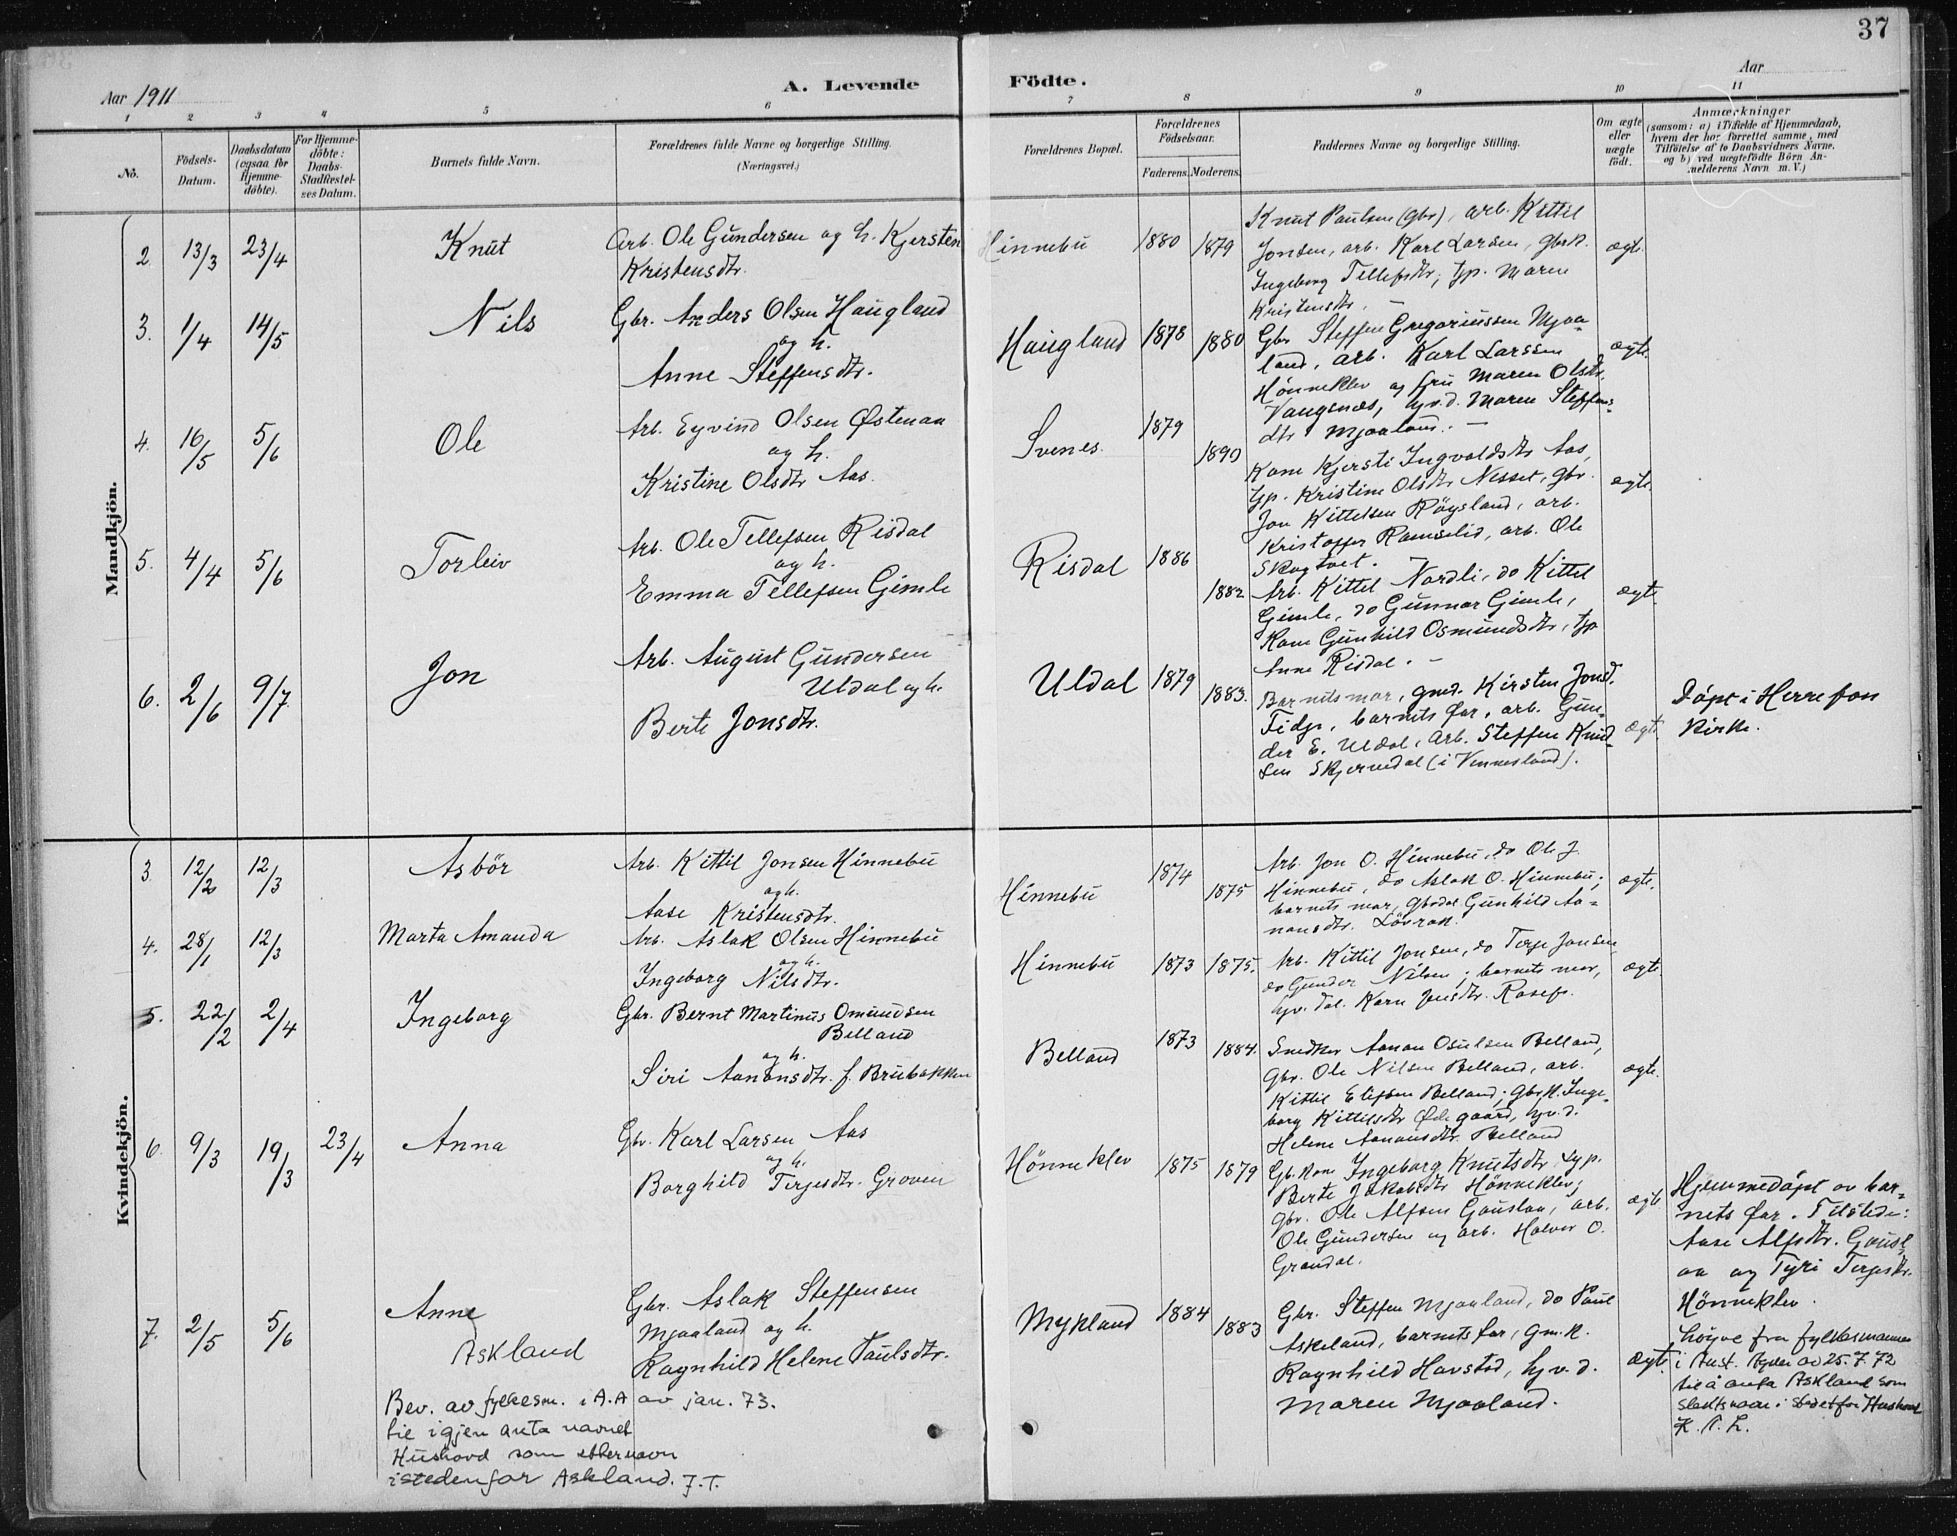 37
Aar 1911
A. Levende Födte.
Aar
1 2 3 4 5 6 7 8 9 10 11
No.
Födsels-Datum.
Daabsdatum (ogsaa for Hjemmedöbte).
For Hjemmedöbte: Daabs-Stadfæstelses Datum.
Barnets fulde Navn.
Forældrenes fulde Navne og borgerlige Stilling.
(Næringsvei.)
Forældrenes Bopæl.
Forældrenes Födselsaar.
Faderens. Moderens.
Faddernes Navne og borgerlige Stilling.
Om ægte eller uægte födt.
Anmærkninger
(saasom: a) i Tilfælde af Hjemmedaab,
hvem der har forrettet samme, med
Tilföielse af to Daabsvidners Navne,
og b) ved uægtefödte Börn Anmelderens Navn m. V.)
Mandkjön.
2. 13/3 23/4 Knut
Arb. Ole Gundersen og h. Kjersten
Kristensdtr.
Hinnebu 1880 1879
Knut Paulsen (gbr), arb. Kittil
Jonsen, arb. Karl Larsen, gbrk.
Ingeborg Tellefsdtr, tjp. Maren
Kristensdtr.
ægte.
3. 1/4 14/5 Nils
Gbr. Anders Olsen Haugland
og h.
Anne Steffensdtr.
Haugland 1878 1880
Gbr Steffen Gregoriussen Mjaa-
land, arb. Karl Larssen
Hönneklev og fru Maren Olsdtr.
Vaagsnæs, hjv.d. Maren Steffens-
dtr Mjaaland. —
ægte.
4. 16/5 5/6 Ole
Arb. Eyvind Olsen Østenaa
og h.
Kristine Olsdtr Aas.
Svenes. 1879 1890
Kone Kjersti Ingvaldsdtr Aas,
tjp. Kristine Olsdtr Nesset, gbr.
Jon Kittelsen Röysland, arb.
Kristoffer Ramselid, arb. Ole
Skogtvet.
ægte.
5. 4/4 5/6 Torleiv
Arb. Ole Tellefsen Risdal
og h.
Emma Tellefsen Gimle
Risdal 1886 1882
Arb. Kittel Nordli, do Kittel
Gimle, do Gunnar Gimle,
Kone Gunhild Osmundsdtr, tjp
Anne Risdal. —
ægt.
6. 2/6 9/7 Jon
Arb. August Gundersen
Uldal og h.
Berte Jonsdtr.
Uldal 1879 1883.
Barnets mor, gmd. Kirsten Jonsd.
Tidje, barnets far, arb. Gun-
der E. Uldal, Arb. Steffen Knud-
sen Skjerndal (i Vennesland).
ægte.
Döpt i Herrefoss
Kirke.
Kvindekjön.
3. 12/2 12/3 Asbör
Arb. Kittil Jonsen Hinnebu
og h.
Aase Kristensdtr.
Hinnebu 1874 1875
Arb. Jon O. Hinnebu, do Ole J.
Hinnebu, do Aslak O. Hinnebu;
barnets mor, gbrdat Gunhild Aa-
nonsdtr. Lövrak.
ægte.
4. 28/1 12/3 Marta Amanda
Arb. Aslak Olsen Hinnebu
og h.
Ingeborg Nilsdtr.
Hinnebu 1873 1875.
Arb. Kittil Jonsen, do Terje Jonsen
do Gunder Nilsen; barnets mor,
hjv. dat. Karen Jensdtr.
ægte
5. 22/2 2/4 Ingeborg
Gbr. Bernt Martinus Omundsen
Belland
og h.
Siri Aanonsdtr. f. Brubakken
Belland 1873 1884.
Snedker Aanon Osulsen Belland,
Gbr. Ole Nilsen Belland, arb.
Kittil Elefsen Belland; Gbr.k. Inge-
borg Kittilsdtr Ødegaard, hjv.d.
Helene Aanonsdtr. Belland
ægte.
6. 9/3 19/3 23/4 Anna
Gbr. Karl Larsen Aas
og h.
Borghild Terjesdtr. Groven
Hönneklev 1875 1879
Gb.kone Ingeborg Knutsdtr, tjp.
Berte Jakobsdtr Hönneklev;
gbr. Ole Alfsen Gauslaa, arb.
Ole Gundersen og arb. Halvor O.
Grandal.
ægte
Hjemmedöpt av bar-
nets far. Tilstede:
Aase Alfsdtr. Gausl-
aa og Tyri Terjesdtr.
Hönneklev.
7. 2/5 5/6 Anne
Askland
Gbr. Aslak Steffensen
Mjaaland og h.
Ragnhild Helene Paulsdtr.
Mykland 1884 1883
Gbr. Steffen Mjaaland, do Paul
Askeland, barnets far, gm.k.
Ragnhild Havstad, hjv.d.
Maren Mjaaland.
ægte.
Løyve fra fylkesmannen
i Aust. Agder av 25.7.72
til å anta Askland som
slektsnavn i stedet for Hushovd
K. T. L.
Bev. av fylkesm. i A.A av jan. 73.
til igjen anta navnet
Hushovd som etternavn
istedenfor Askland. J.T.